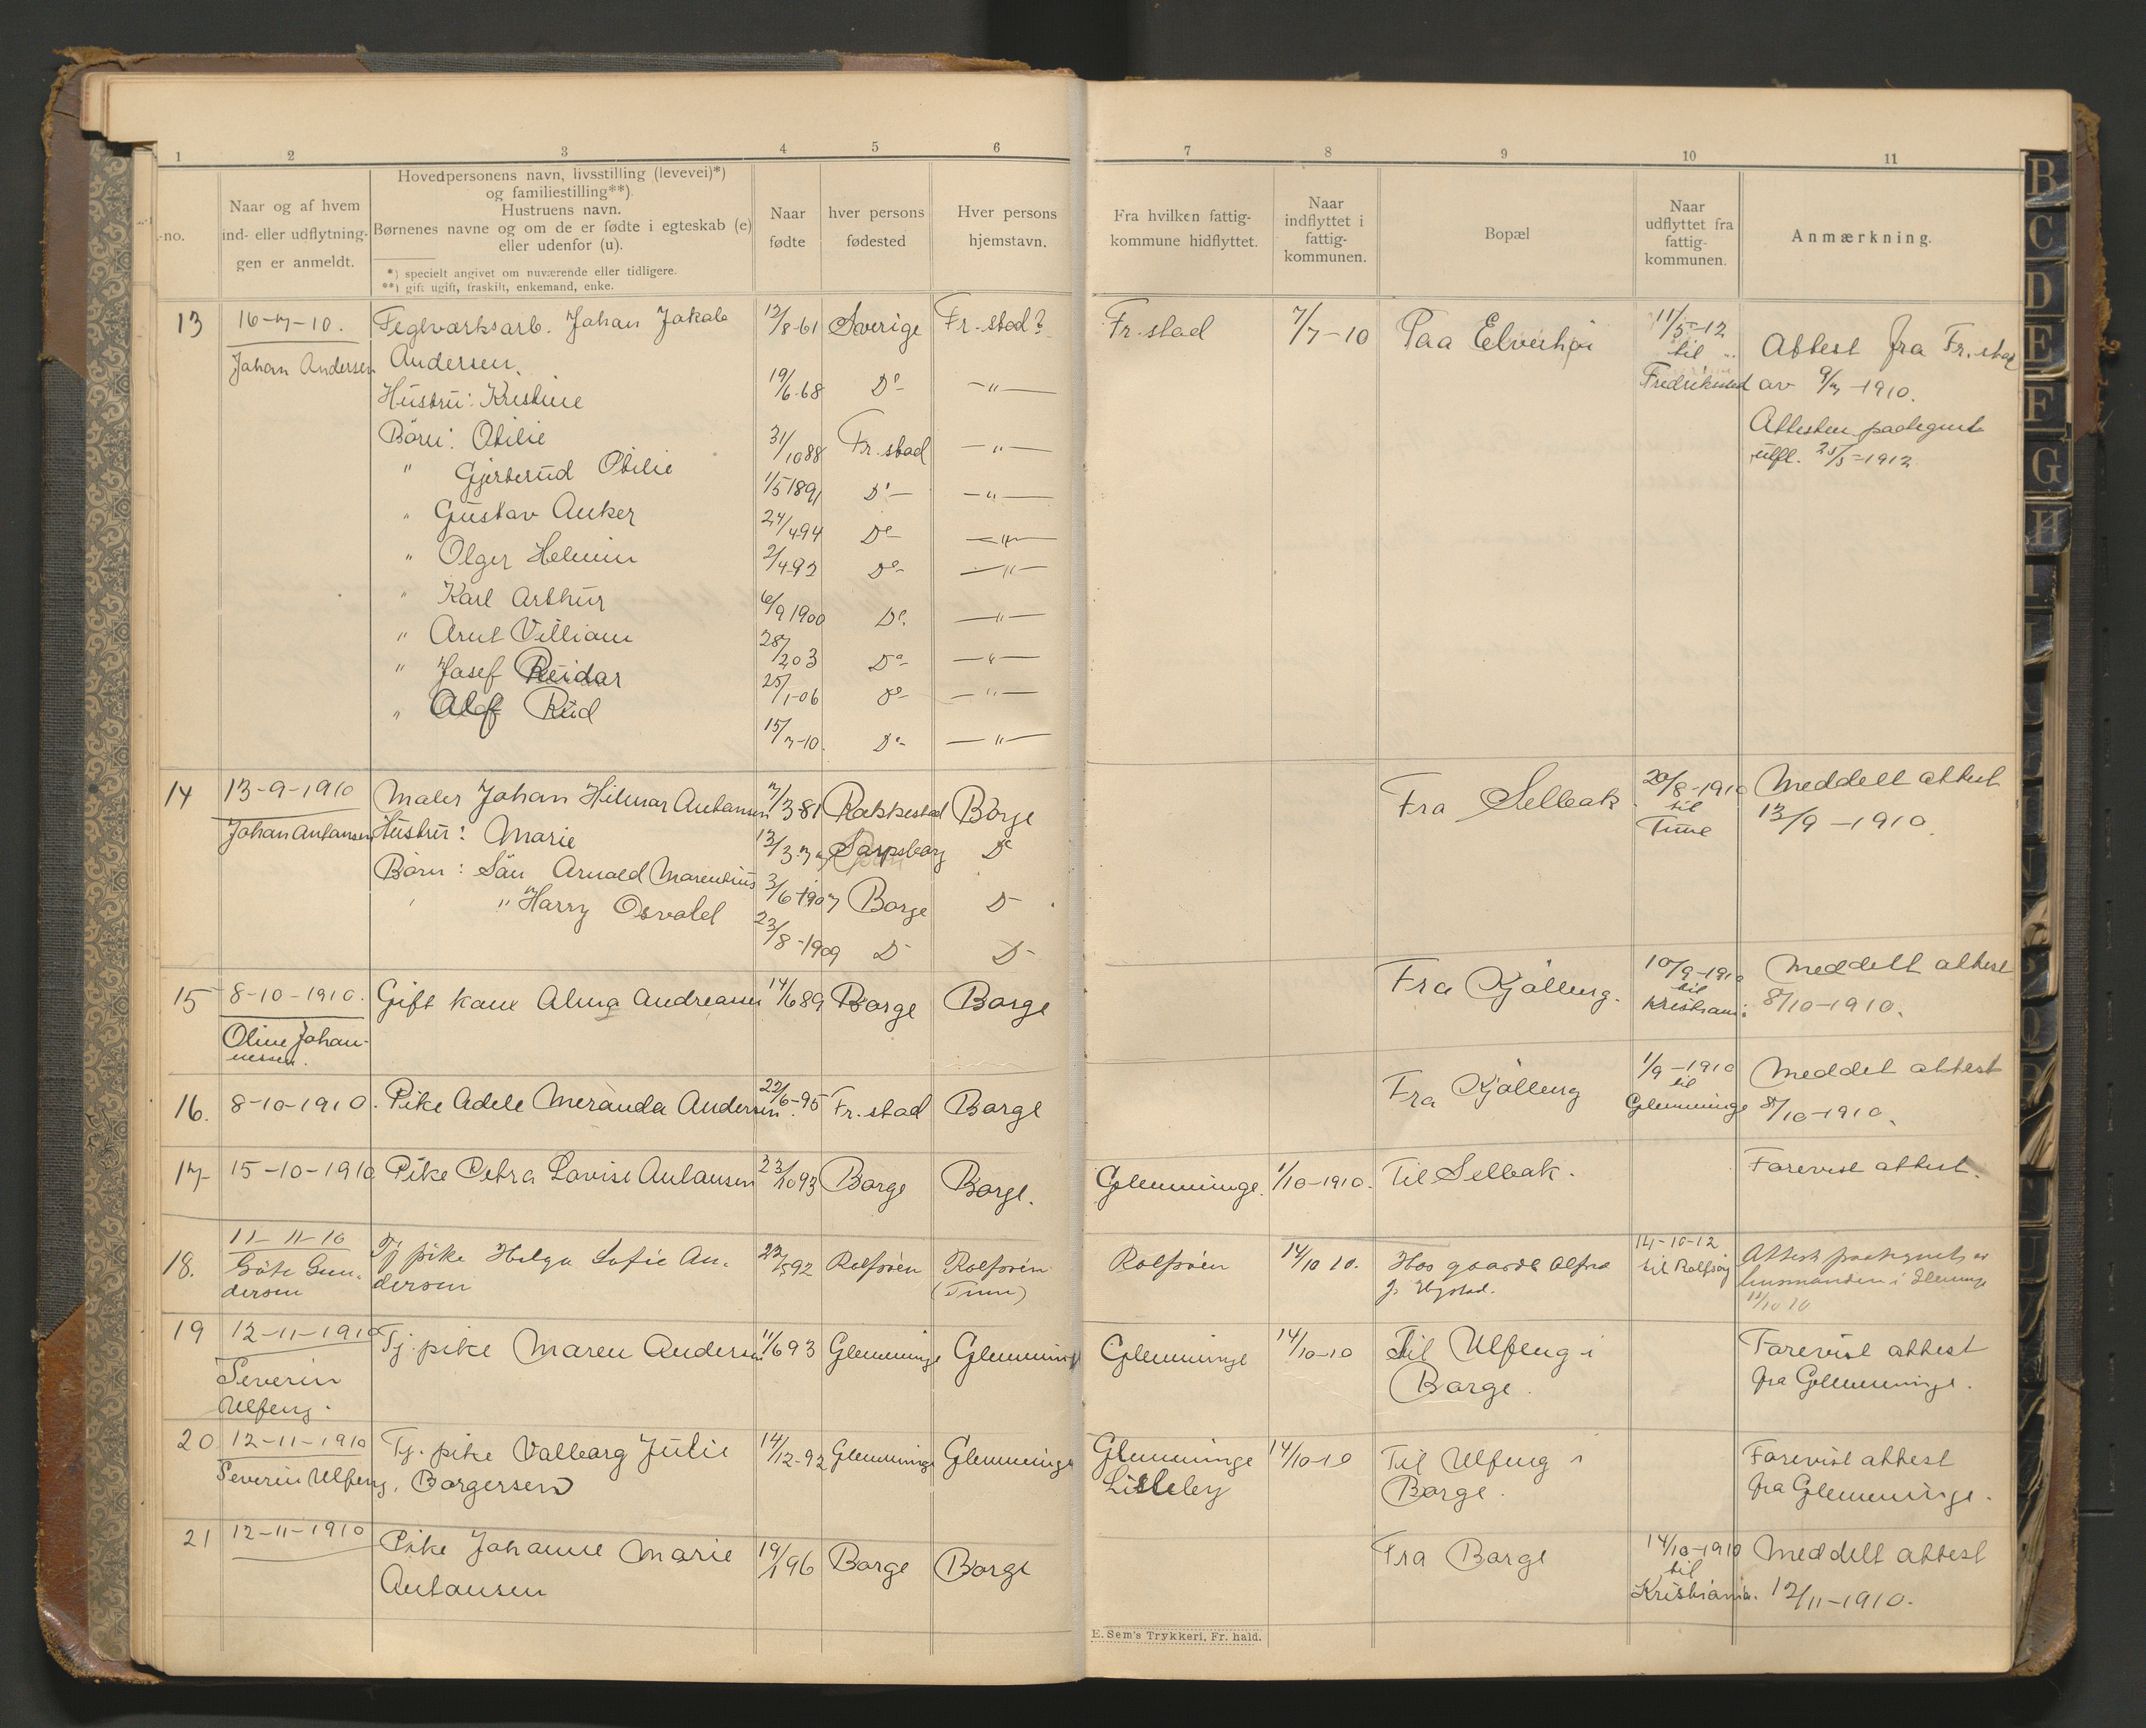 1 2 3 4 5 6 7 8 9 10 11
-no.
Naar og af hvem
ind- eller udflytnin-
gen er anmeldt.
Hovedpersonens navn, livsstilling (levevei)*)
og familiestilling**).
Hustruens navn.
Børnenes navne og om de er fødte i egteskab (e)
eller udenfor (u).
*) specielt angivet om nuværende eller tidligere.
**) gift ugift, fraskilt, enkemand, enke.
Naar
fødte
hver persons
fødested
Hver persons
hjemstavn.
Fra hvilken fattig-
kommune hidflyttet.
Naar
indflyttet i
fattig-
kommunen.
Bopæl
Naar
udflyttet fra
fattig-
kommunen.
Anmærkning.
13 16-7-10. Teglværksarb. Johan Jakob 12/8-61 Sverige Fr.stad? Fr.stad 7/7-10 Paa Elverhøi 11/5-12 Attest fra Fr.stad
Johan Andersen Andersen. til
Fredrikstad av 9/7-1910.
Hustru: Kristine 19/6-68 Do -"-
Attesten paategnet
Børn: Otilie 31/10 88 Fr.stad -"-
utfl. 25/5-1912
" Gjertrud Otilie 1/5 1891 Do -"-
" Gustav Anker 24/4 94 Do -"-
" Olger Helmin 2/4 92 Do -"-
" Karl Arthur 6/9 1900 Do. -"-
" Arnt Villiam 28/2 03 Do -"-
" Josef Reidar 25/1-06 Do -"-
" Olaf Rud 15/7-10. Do -"-
14 13-9-1910 Maler Johan Hilmar Antonsen 7/3 81 Rakkestad Borge Fra Selbak 20/8-1910 Meddelt attest
Johan Antonsen Hustru: Marie 12/3 Sarpsborg Do til
Tune 13/9-1910.
Børn: Sön Arnold Marentius 3/6-1907 Borge D-
" "Harry Osvald 23/8-1909 D- D-
15 8-10-1910. Gift kone Alma Andreasen 14/6 89 Borge Borge Fra Kjölberg. 10/9-1910 Meddelt attest
Oline Johan-
nessen.
til
Kristiania 8/10-1910.
16. 8-10-1910. Pike Adele Meranda Andersen 22/6-95 Fr.stad Borge Fra Kjölberg 1/9-1910 Meddel attest
til
Glemminge 8/10-1910.
17 15-10-1910 Pike Petra Lovise Antonsen 23/10 93 Borge Borge. Glemminge. 1/10-1910. Til Selbak. Forevist attest.
18. 11-11-10 Tj pike Helga Sofie An- 22/5 92 Rolfsöen Rolfsöen Rolfsöen 14/10 10. Hos gaardb Alfred 14-10-12 Attest paategnet av
Gun-
dersen
dersen (Tune) til Rolfsøy
19 12-11-1910 Tj. pike Maren Andersen 11/6 93 Glemminge Glemminge Glemminge 14/10-10 Til Ulfeng i Forevist attest
Severin
Ulfeng.
Borge. fra Glemminge.
20 12-11-1910 Tj. pike Valborg Julie 14/12-92 Glemminge Glemminge Glemminge 14/10-10 Til Ulfeng i Forevist attest
Severin Ulfeng. Borgersen Lisleby Borge. fra Glemminge.
21 12-11-1910 Pike Johanne Marie 19/1 96 Borge Borge Fra Borge 14/10-1910 Meddelt attest
Antonsen til
Kristiania. 12/11-1910.
E. Sem's Trykkeri, Fr. hald.
B
C
D
E
F
G
H